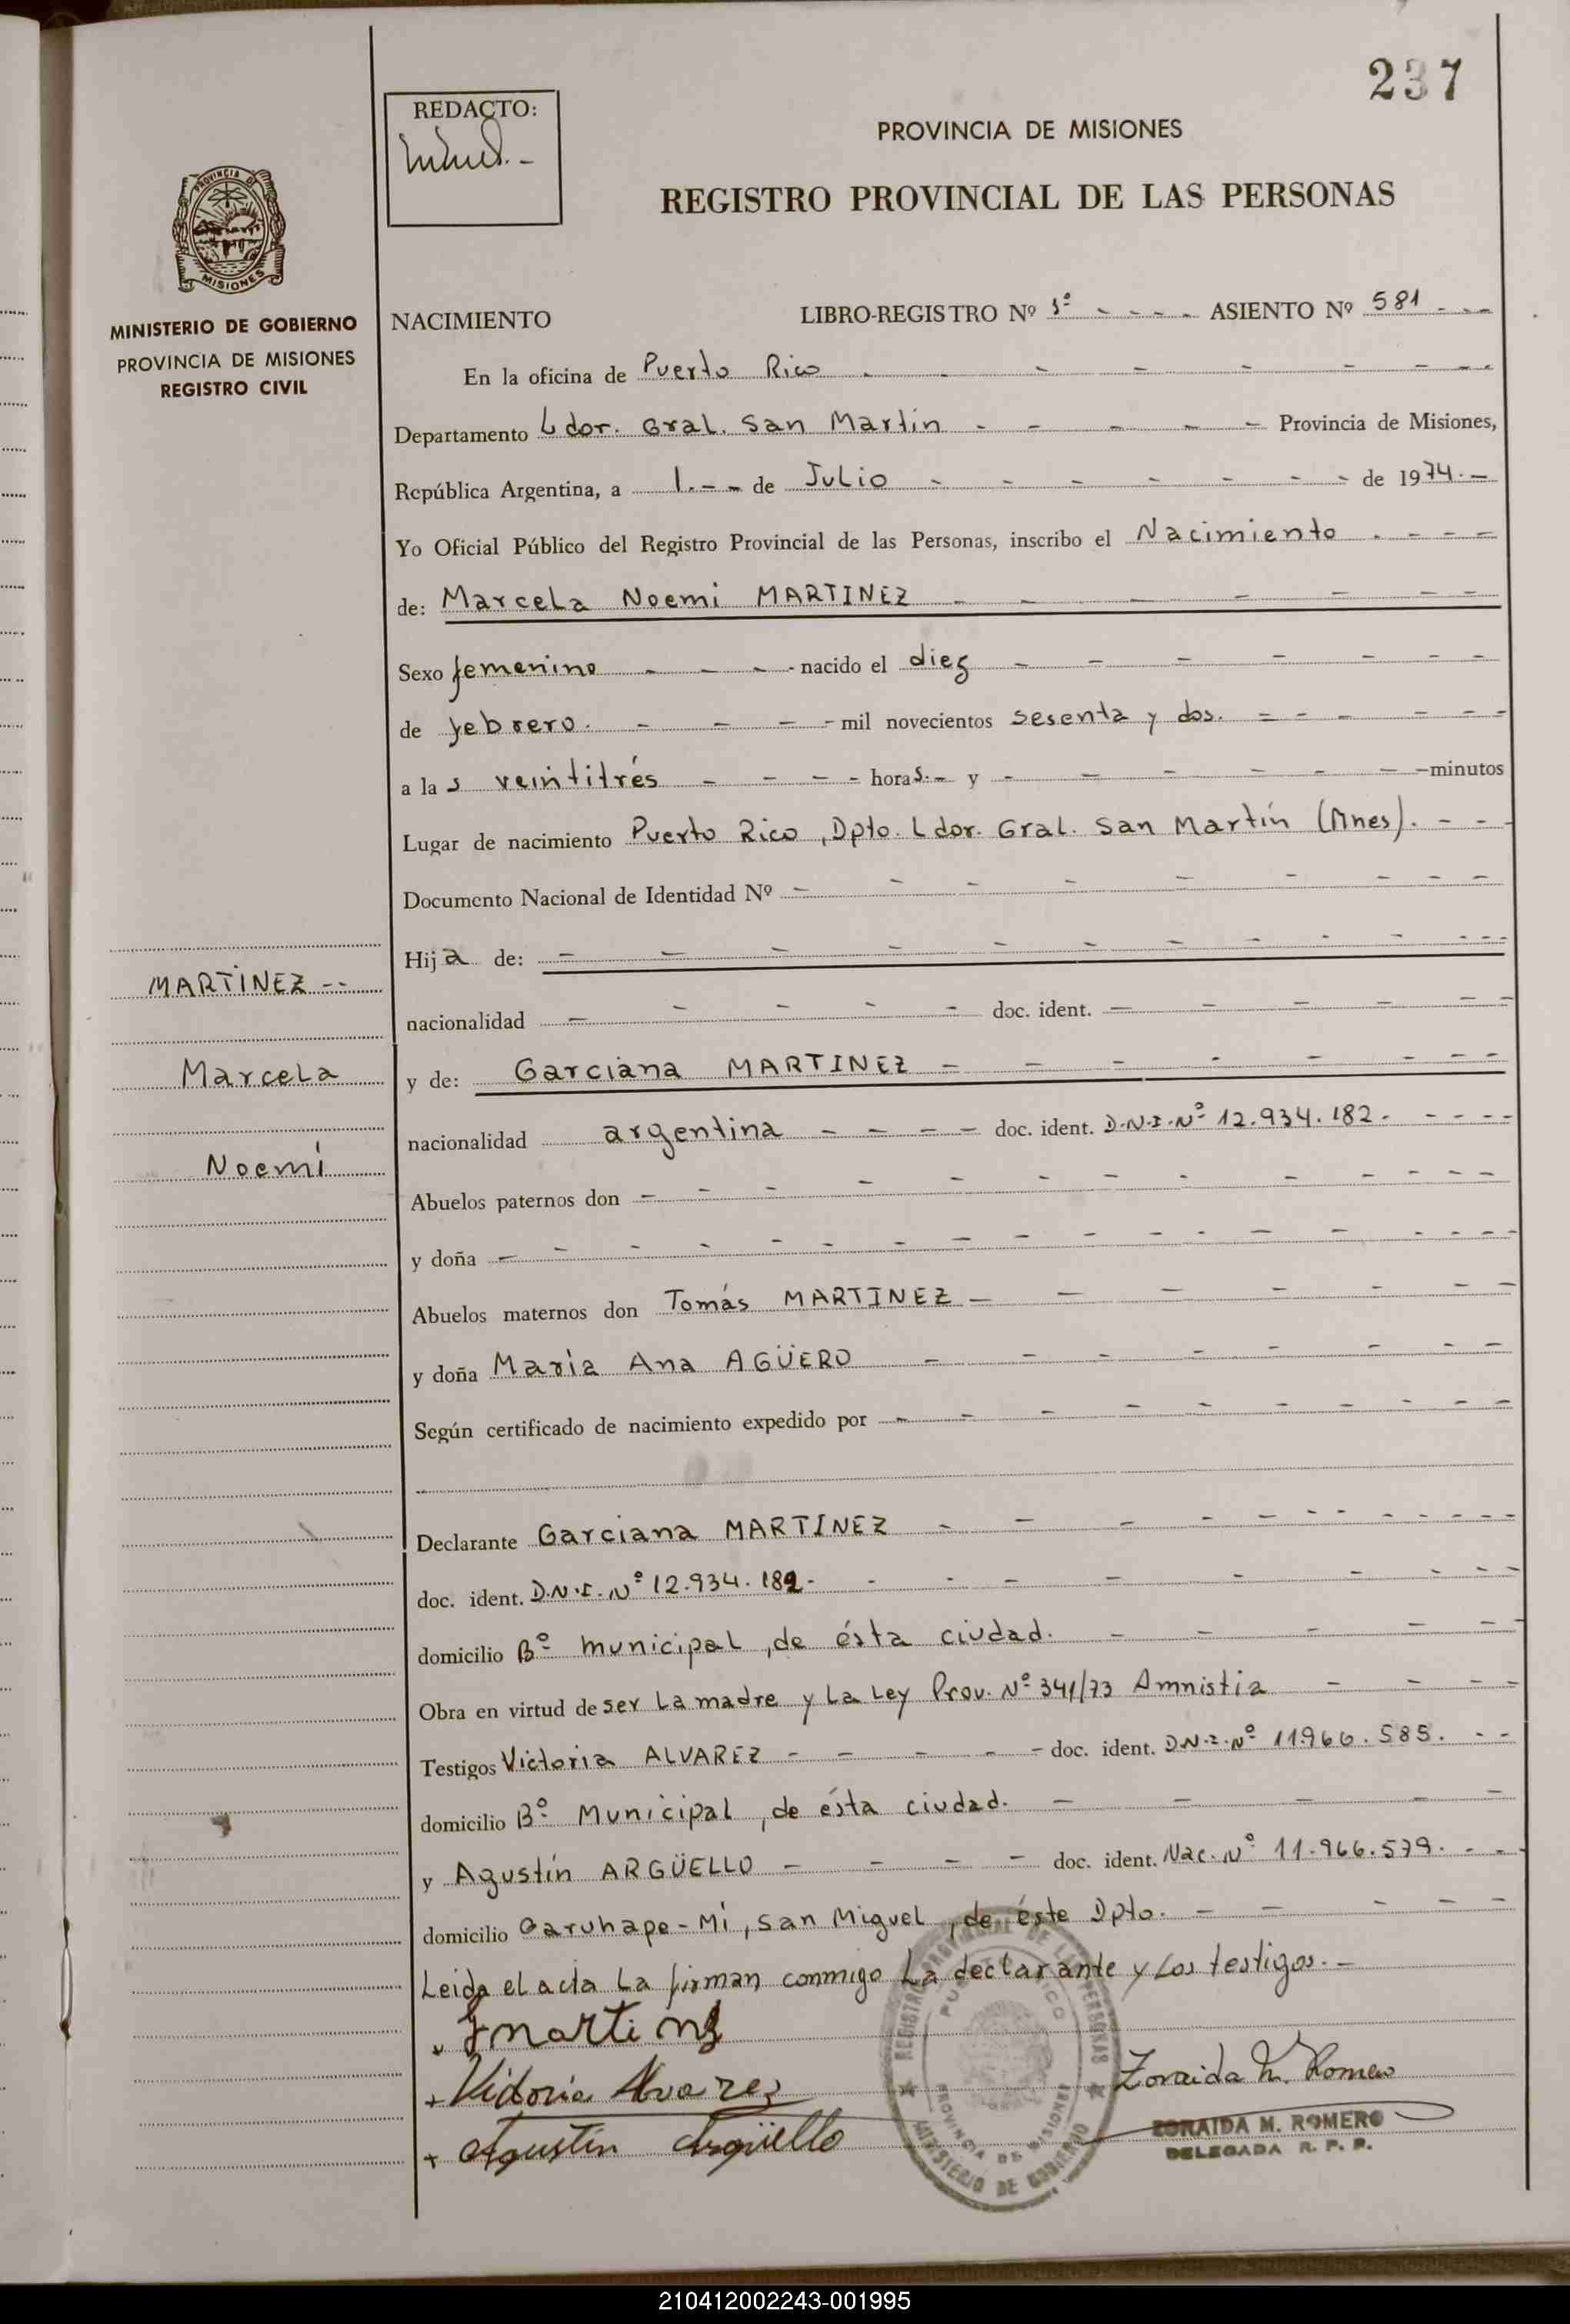 237
REDACTO:
PROVINCIA DE MISIONES
REGISTRO PROVINCIAL DE LAS PERSONAS
PROVINCIA DE
MISIONES
MINISTERIO DE GOBIERNO
PROVINCIA DE MISIONES
REGISTRO CIVIL
NACIMIENTO LIBRO-REGISTRO Nº ASIENTO Nº 581 - - -
En la oficina de Puerto Rico - - - - - - - -
Departamento Ldor. Gral. San Martín - - - - - Provincia de Misiones,
República Argentina, a 1.- - de Julio - - - - - - - de 1974.-
Yo Oficial Público del Registro Provincial de las Personas, inscribo el Nacimiento . - - -
de: Marcela Noemi MARTINEZ - - - - - - -
Sexo femenino - - - - nacido el diez - - - - - - -
de febrero. - - - - mil novecientos sesenta y dos. - - - - - -
a las veintitrés - - - - horas.- y - - - - - - - minutos
Lugar de nacimiento Puerto Rico, Dpto. Ldor. Gral. San Martín (Mnes). - - -
Documento Nacional de Identidad Nº - - - - - - - - -
Hija de: - - - - - - - - - - - -
nacionalidad - - - - - doc. ident. - - - - - -
y de: Garciana MARTINEZ - - - - - - - -
nacionalidad argentina - - - - doc. ident. D.N.I. Nº 12.934.182. - - - -
Abuelos paternos don - - - - - - - - - - - - -
y doña - - - - - - - - - - - - - - - -
Abuelos maternos don Tomás MARTINEZ - - - - - - -
y doña María Ana AGÜERO - - - - - - - -
Según certificado de nacimiento expedido por - - - - - - - - -
Declarante Garciana MARTINEZ - - - - - - - - - - - -
doc. ident. D.N.I. Nº 12.934.182.- - - - - - - - - -
domicilio Bº municipal, de ésta ciudad. - - - - -
Obra en virtud de ser La madre y La Ley Prov. Nº 341/73 Amnistia - - - -
Testigos Victoria ALVAREZ - - - - - doc. ident. D.N.I. Nº 11.966.585. - -
domicilio Bº Municipal, de ésta ciudad. - - - - -
y Agustín ARGÜELLO - - - - doc. ident. Nac. Nº 11.966.579. - - -
domicilio Garuhape-Mí, San Miguel, de éste Dpto. - - - - -
Leida el acta La firman conmigo La declarante y Los testigos.-
MARTINEZ --
Marcela
Noemí
Victoria Alvarez
Agustín Argüello
Zoraida M. Romero
ZORAIDA M. ROMERO
DELEGADA R. P. P.
REGISTRO PROVINCIAL DE LAS PERSONAS
PROVINCIA DE MISIONES
MINISTERIO DE GOBIERNO
210412002243-001995